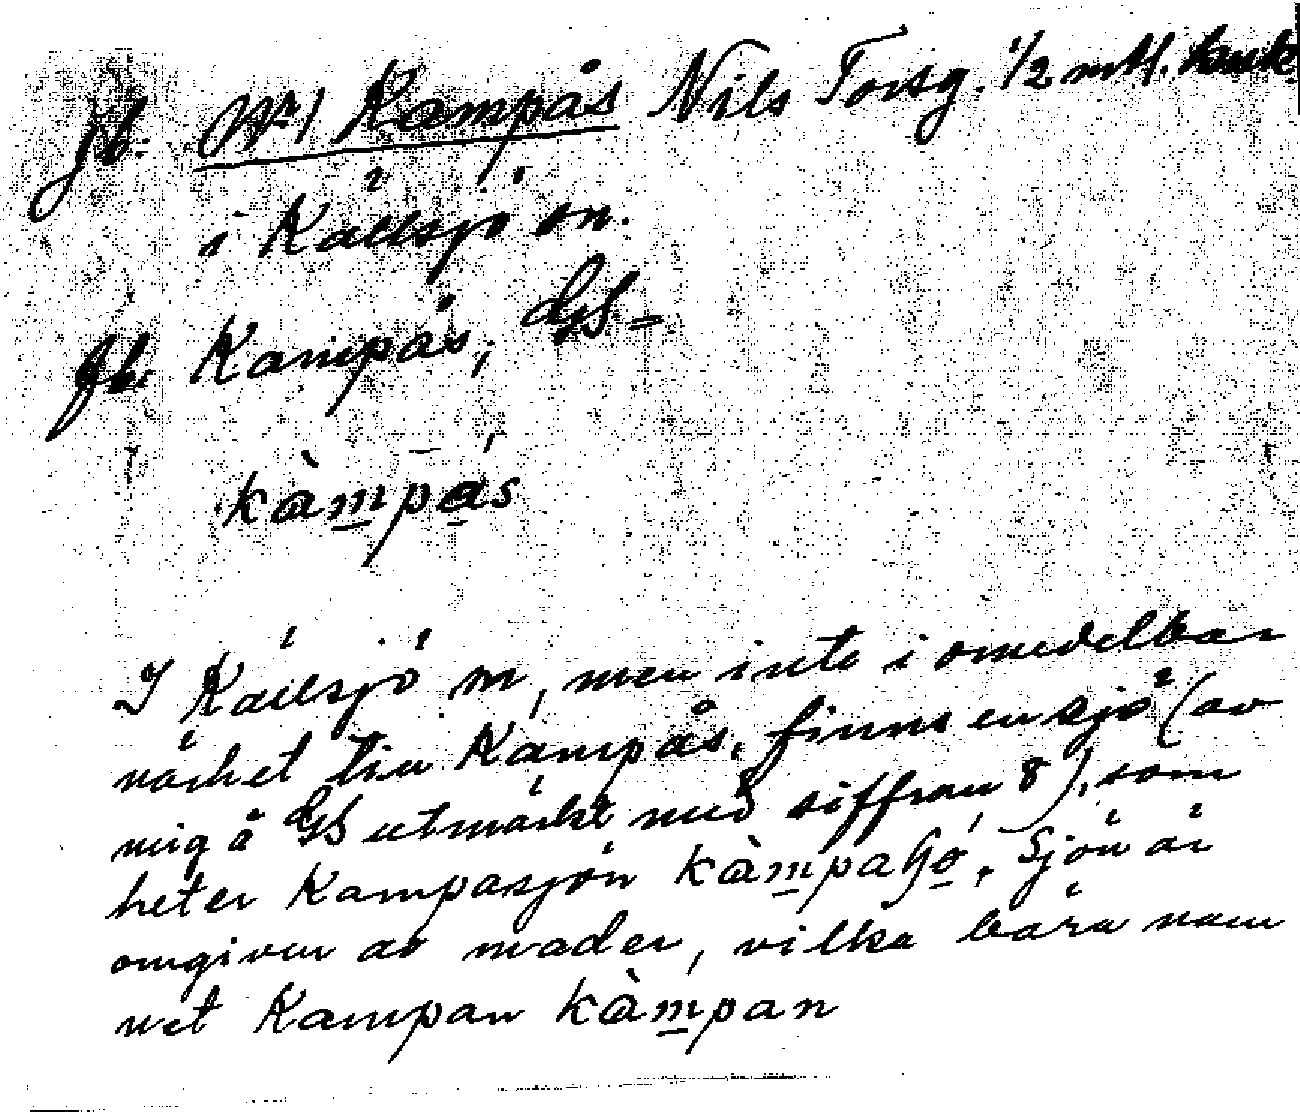 Jb. Nr 1 Kampås Nils Torsg. 1/2 mtl.
i Källsjö sn.
Jb. Kampås, GS-
kàmpås
I Källsjö sn, men inte i omedelbar
närhet till Kampås, finns en sjö (av
mig å GS utmärkt med siffran 8), som
heter Kampasjön kàmpaʃö. Sjön är
omgiven av mader, vilka bära nam
net Kampan kàmpan